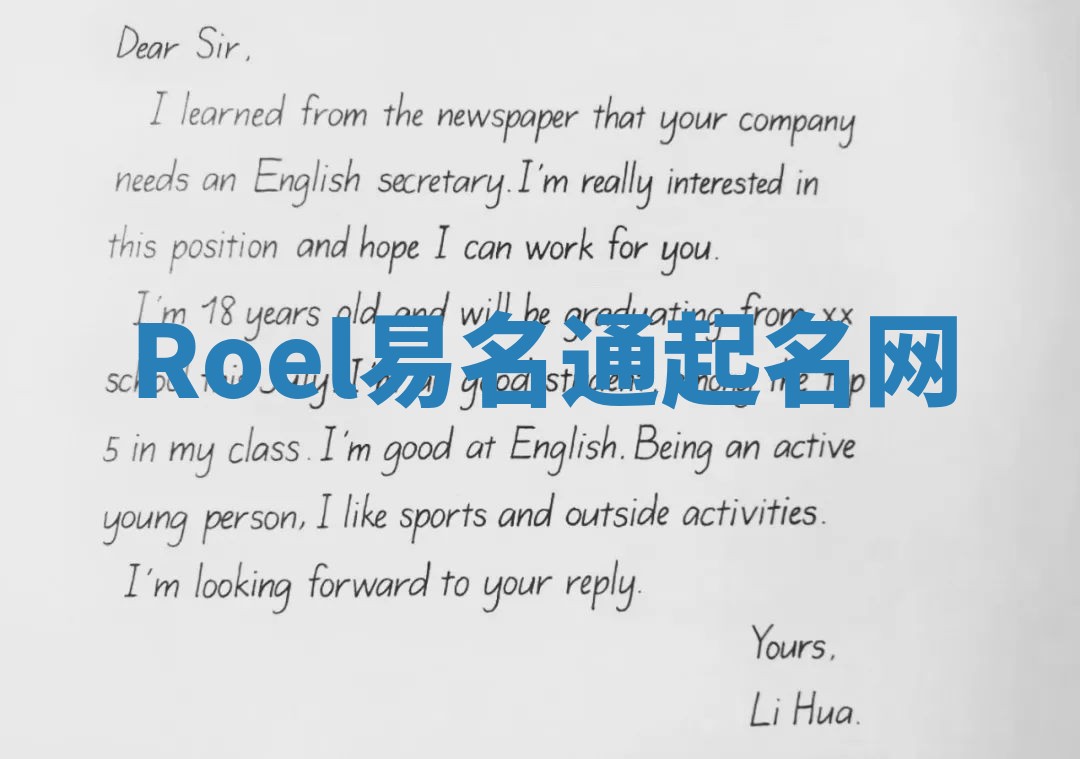 Dear Sir,
I learned from the newspaper that your company
needs an English secretary. I'm really interested in
this position and hope I can work for you.
I'm 18 years old and will be graduating from xx
Roel易名通起名网
school this July. I'm a good student among the top
5 in my class. I'm good at English. Being an active
young person, I like sports and outside activities.
I'm looking forward to your reply.
Yours,
Li Hua.